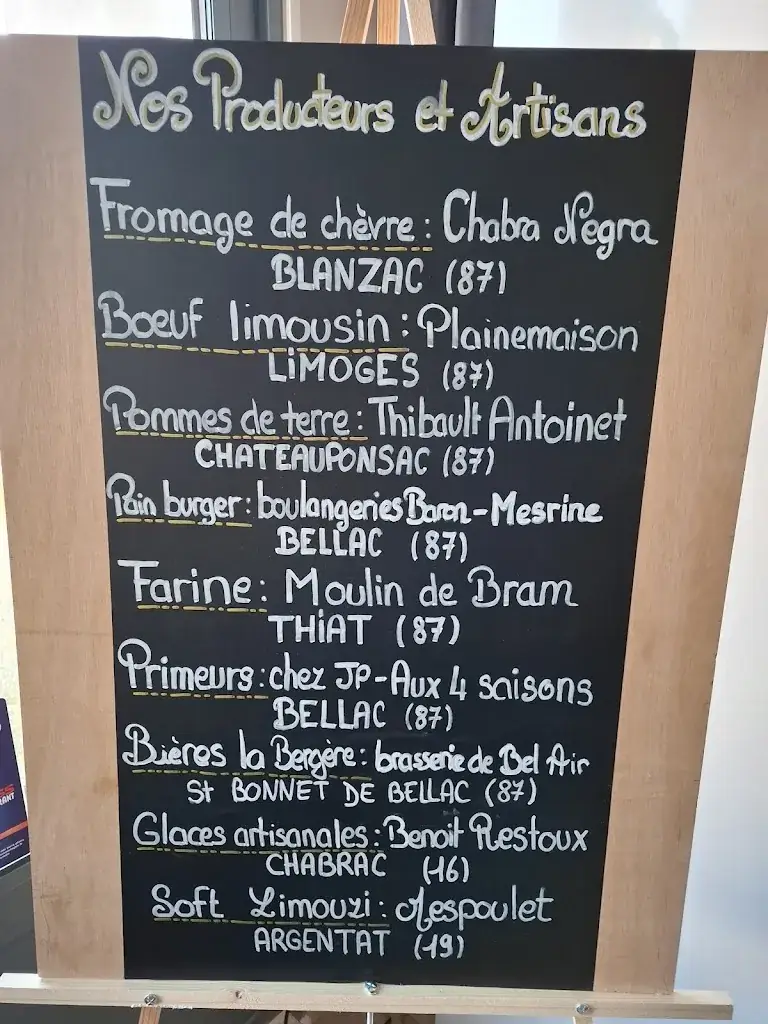 Nos Producteurs et Artisans
Fromage de chèvre : Chabra Negra
BLANZAC (87)
Boeuf limousin : Plainemaison
LIMOGES (87)
Pommes de terre : Thibault Antoinet
CHATEAUPONSAC (87)
Pain burger : boulangeries Baron - Mesrine
BELLAC (87)
Farine : Moulin de Bram
THIAT (87)
Primeurs : chez JP - Aux 4 saisons
BELLAC (87)
Bières la Bergère : brasserie de Bel Air
St BONNET DE BELLAC (87)
Glaces artisanales : Benoit Restoux
CHABRAC (16)
Soft Limouzi : Mespoulet
ARGENTAT (19)